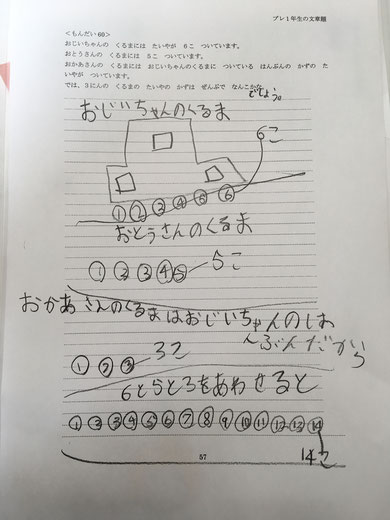 プレ1年生の文章題
<もんだい60>
おじいちゃんの くるまには たいやが 6こ ついています。
おとうさんの くるまには 5こ ついています。
おかあさんの くるまには おじいちゃんのくるまに ついている はんぶんの かずの た
いやが ついています。
では、3にんの くるまの たいやの かずは ぜんぶで なんこかな
でしょう。
おじいちゃんのくるま
6こ
① ② ③ ④ ⑤ ⑥
おとうさんのくるま
① ② ③ ④ ⑤ 5こ
おかあさんのくるまはおじいちゃんのはんぶんだから
① ② ③ 3こ
6と5と3をあわせると
① ② ③ ④ ⑤ ⑥ ⑦ ⑧ ⑨ ⑩ ⑪ ⑫ ⑬ ⑭
14こ
57